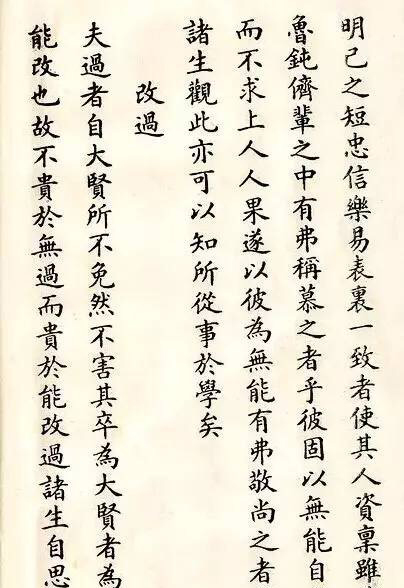 明己之短忠信樂易表裏一致者使其人資稟雖
魯鈍儕輩之中有弗稱慕之者乎彼固以無能自
而不求上人人果遂以彼為無能有弗敬尚之者
諸生觀此亦可以知所從事於學矣
改過
夫過者自大賢所不免然不害其卒為大賢者為
能改也故不貴於無過而貴於能改過諸生自思